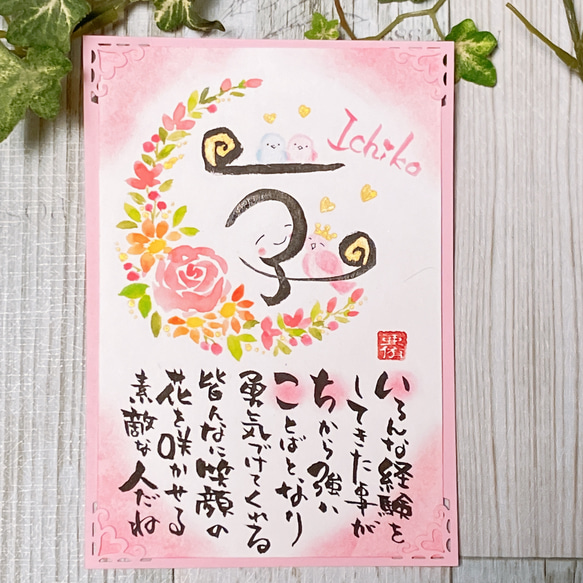 一子
Ichiko
いろんな経験を
してきた事が
ちから強い
ことばとなり
勇気づけてくれる
皆んなに笑顔の
花を咲かせる
素敵な人だね